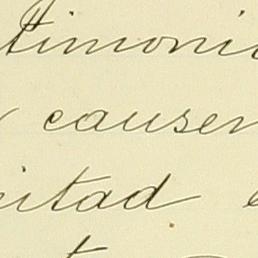 timoni
causen
itad